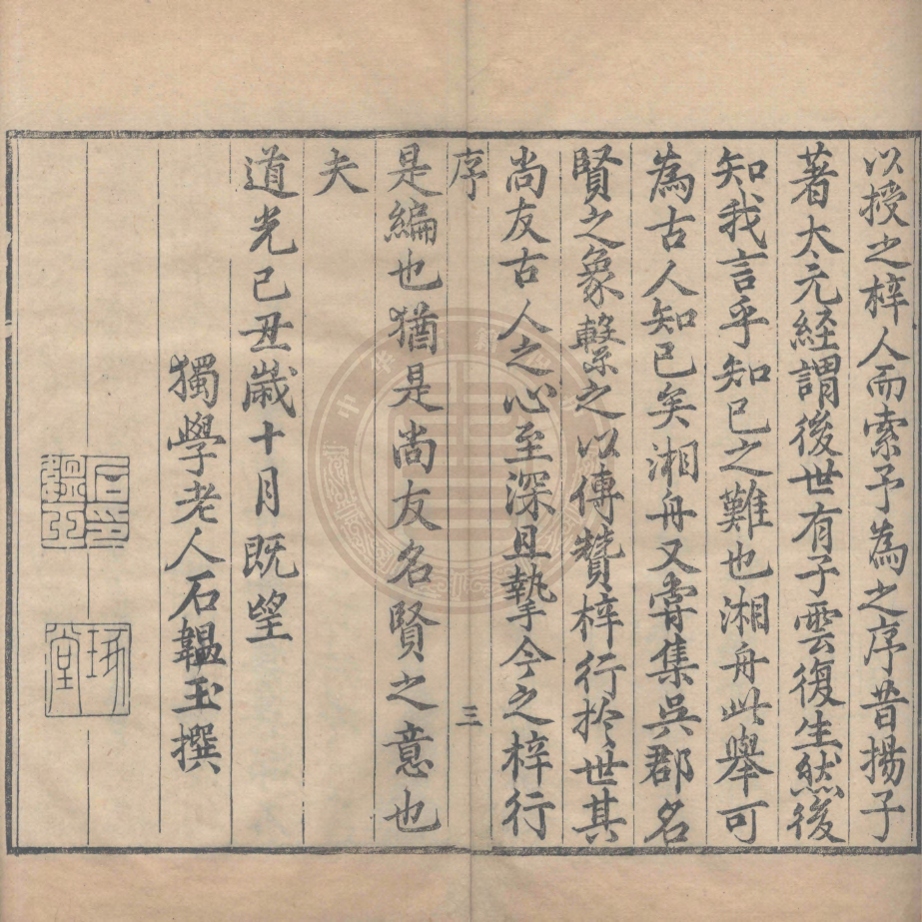 以授之梓人而索予為之序昔揚子
著太元経謂後世有子雲復生然後
知我言乎知已之難也湘舟此舉可
為古人知已矣湘舟又嘗集吳郡名
賢之象繫之以傳贊梓行於世其
尚友古人之心至深且摯今之梓行
序
三
是編也猶是尚友名賢之意也
夫
道光已丑歲十月既望
獨學老人石韞玉撰